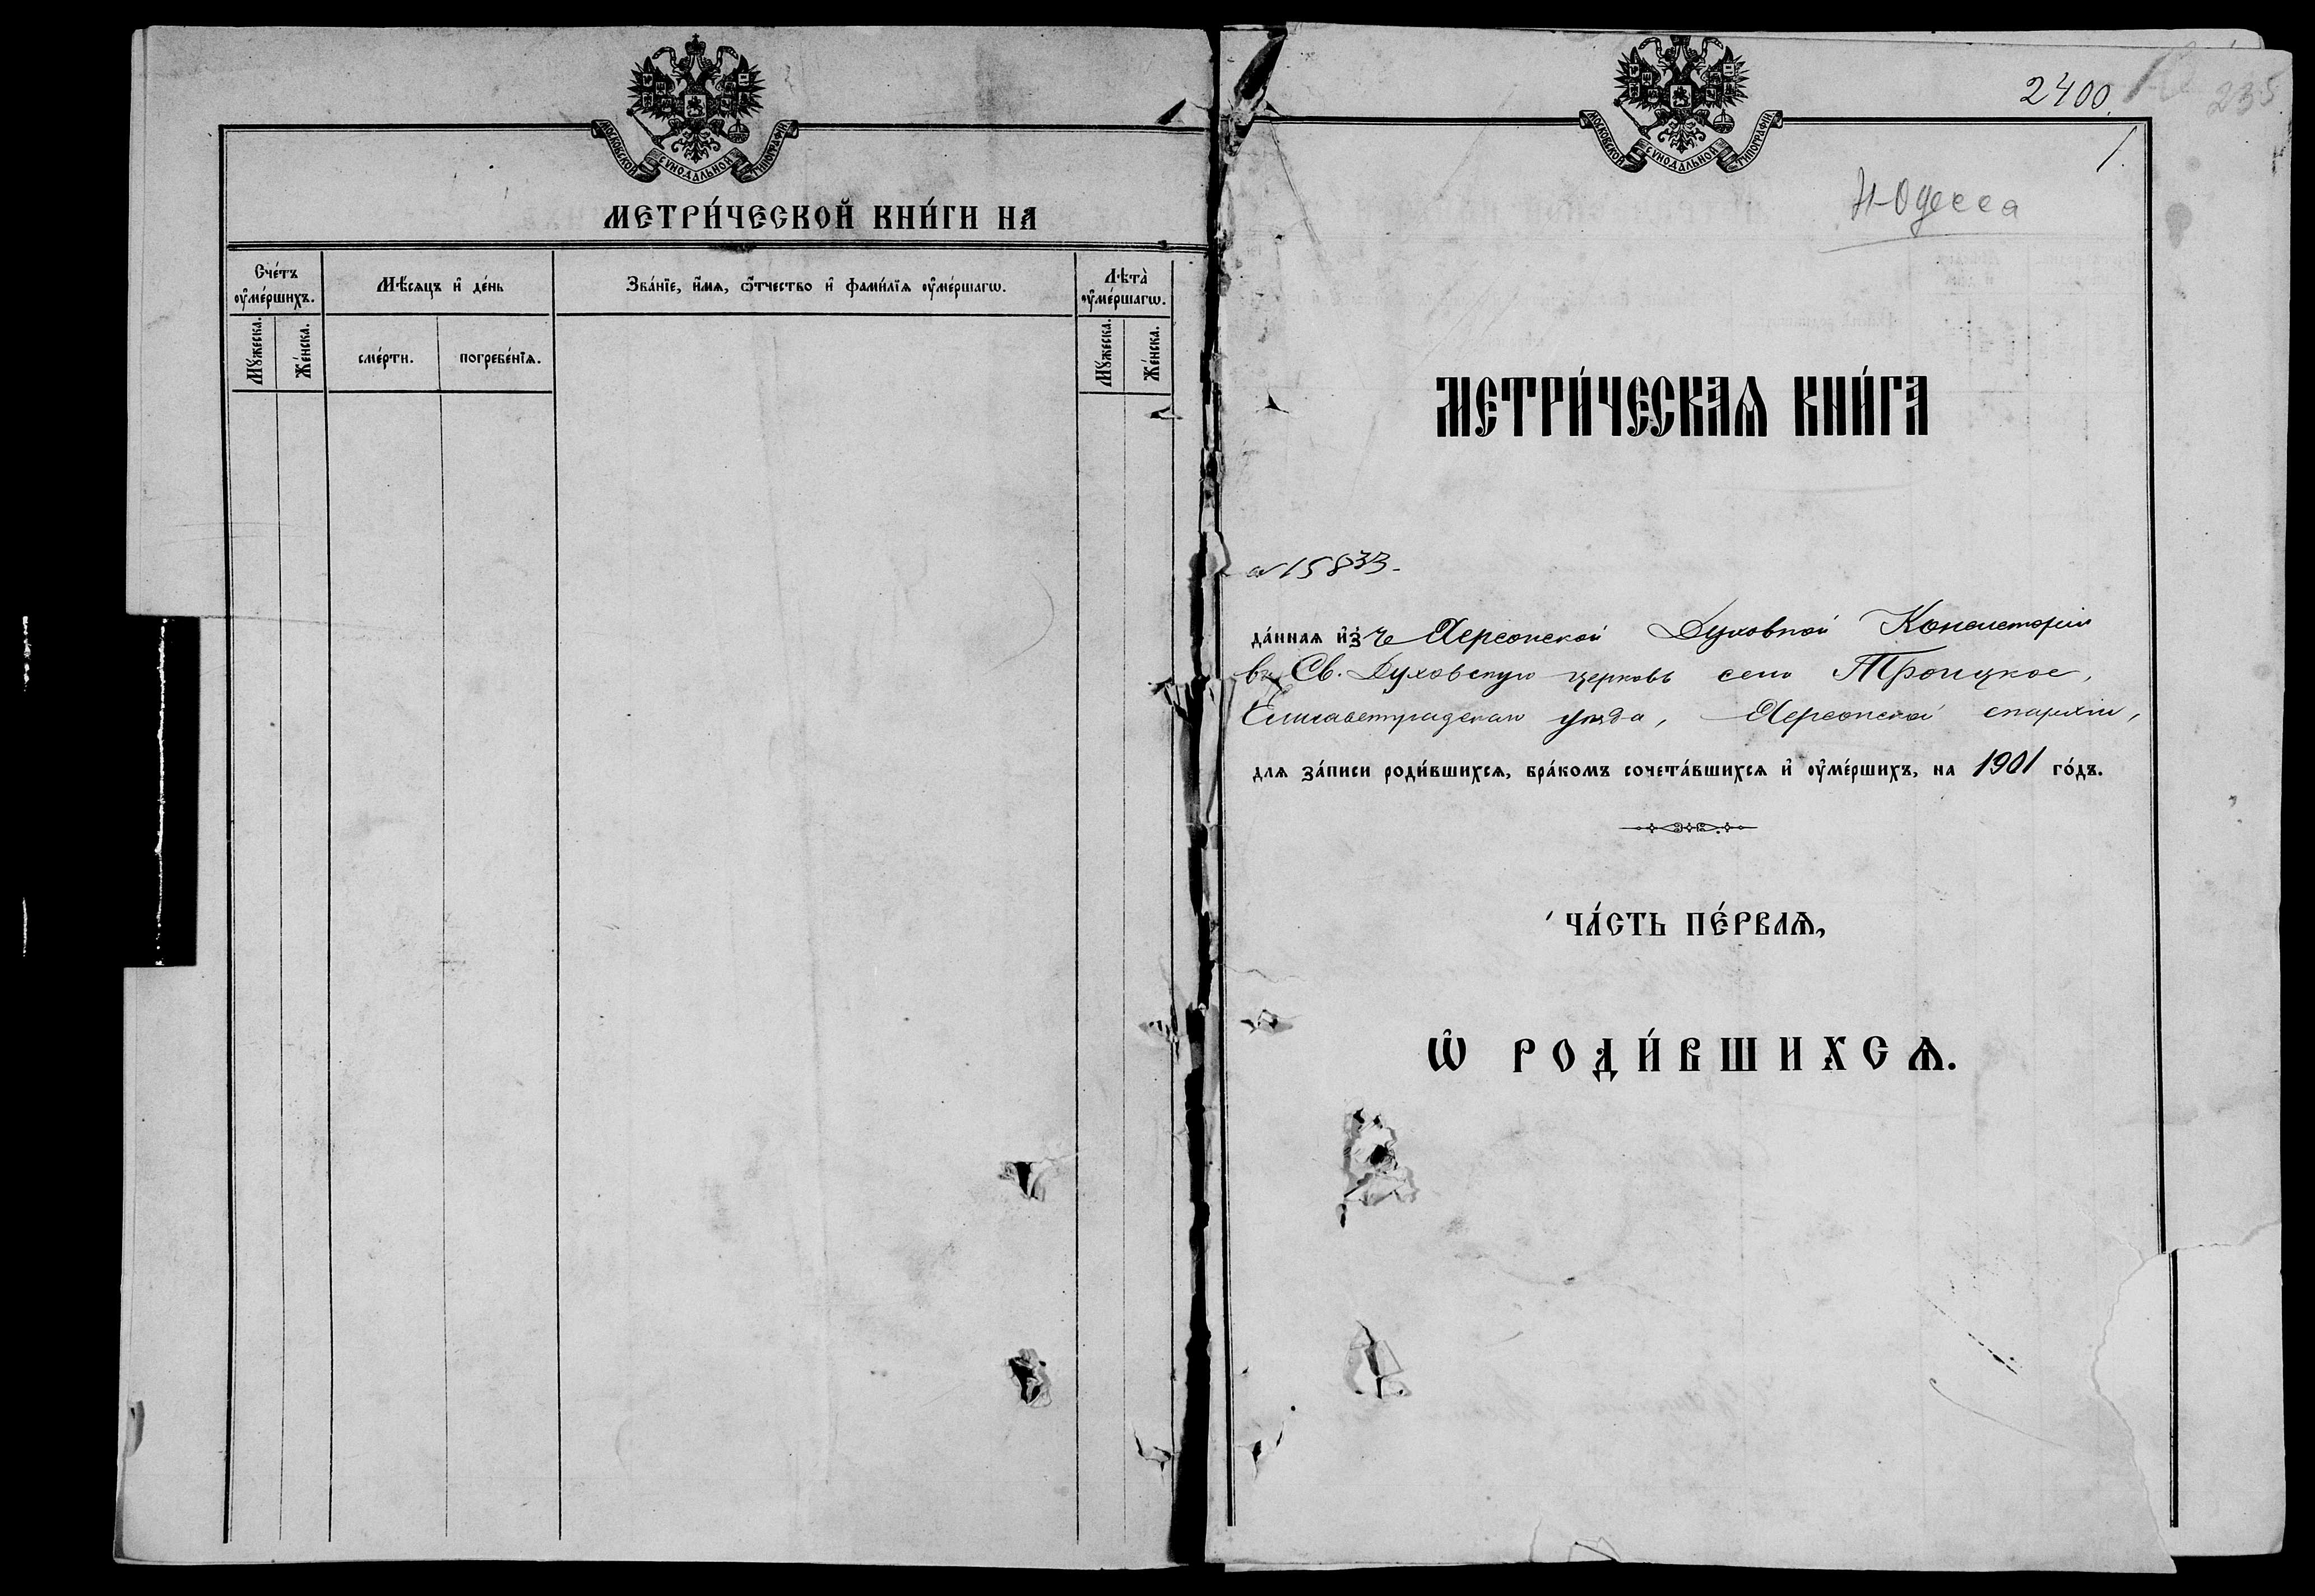 МОСКОВСКОЙ СѴНОДАЛЬНОЙ ТИПОГРАФІИ
МЕТРИ́ЧЕСКОЙ КНИ́ГИ НА
Сче́тъ ᲂу҆ме́ршихъ.
Мѣ́сяцъ и҆ де́нь
Зва́нїе, и҆́мѧ, ѻ҆́тчество и҆ фами́лїѧ ᲂу҆ме́ршагѡ.
Лѣта̀ ᲂу҆ме́ршагѡ.
Мꙋ́жеска.
Же́нска.
сме́рти.
погребе́нїѧ.
Мꙋ́жеска.
Же́нска.
МОСКОВСКОЙ СѴНОДАЛЬНОЙ ТИПОГРАФІИ
2400
235
1.
Н-Одесса
МЕТРИ́ЧЕСКАѦ КНИ́ГА
№ 15833.
да́ннаѧ и҆зъ Херсонской Духовной Консисторіи
въ Св. Духовскую церковь села Троицкое,
Елисаветградскаго уѣзда, Херсонской епархіи,
длѧ за́писи роди́вшихсѧ, бра́комъ сочета́вшихсѧ и҆ ᲂу҆ме́ршихъ, на 1901 го́дъ.
ЧА́СТЬ ПЕ́РВАѦ,
Ѽ РОДИ́ВШИХСѦ.